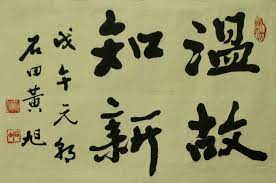 溫故
知新
戊午元朔
石田黃旭